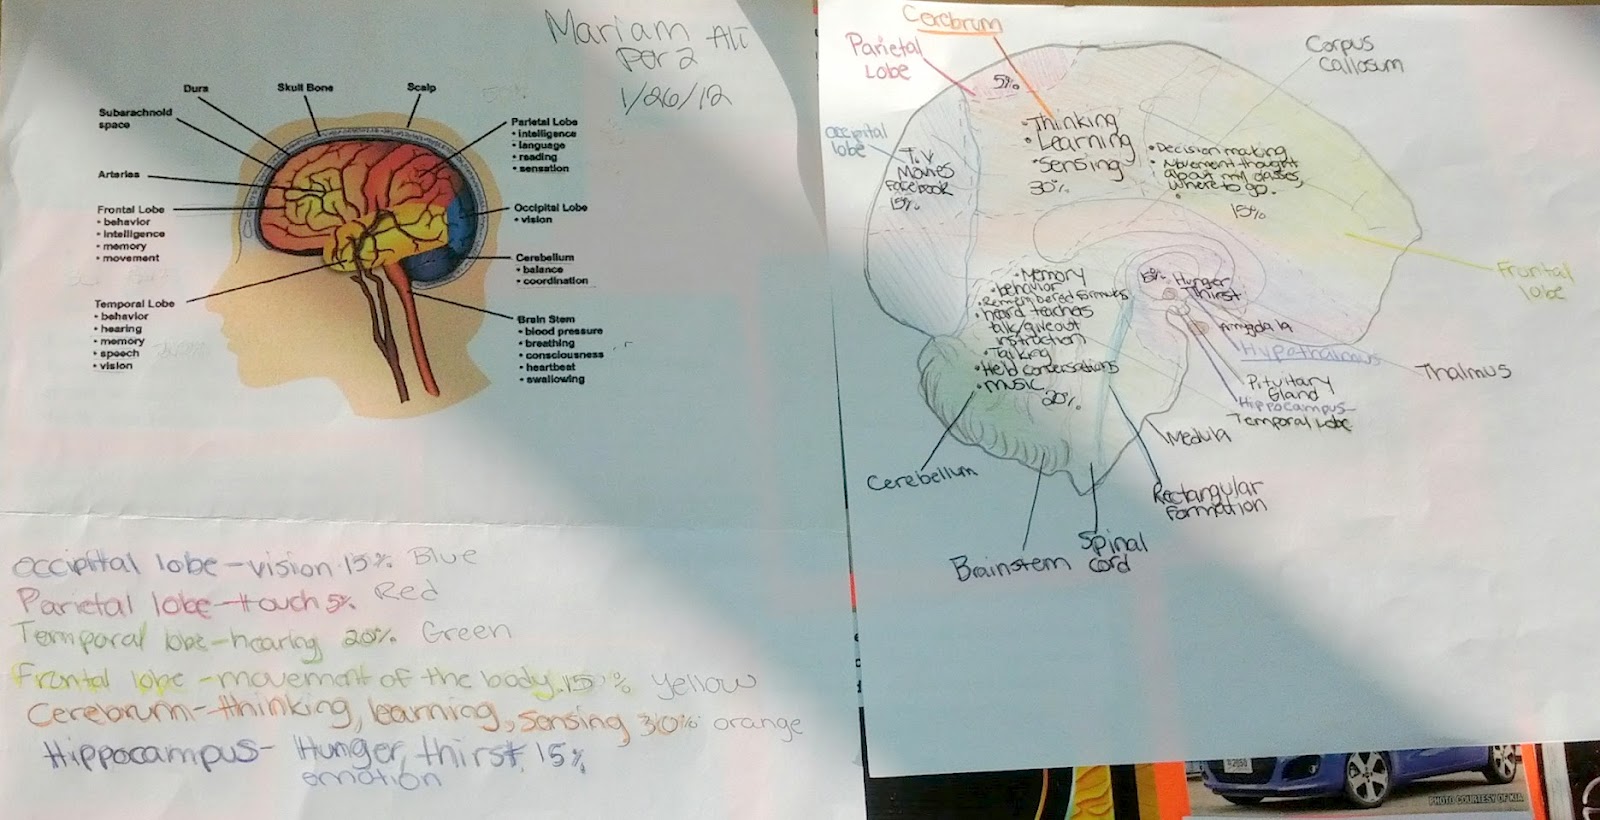 Mariam Ali
Per 2
1/26/12
Dura
Skull Bone
Scalp
Subarachnoid
space
Arteries
Frontal Lobe
• behavior
• intelligence
• memory
• movement
Temporal Lobe
• behavior
• hearing
• memory
• speech
• vision
Parietal Lobe
• intelligence
• language
• reading
• sensation
Occipital Lobe
• vision
Cerebellum
• balance
• coordination
Brain Stem
• blood pressure
• breathing
• consciousness
• heartbeat
• swallowing
occipital lobe - vision 15% Blue
Parietal lobe - touch 5% Red
Temporal lobe - hearing 20% Green
Frontal lobe - movement of the body 15% yellow
Cerebrum - thinking, learning, sensing 30% orange
Hippocampus - Hunger, thirst, 15%
emotion
Cerebrum
Parietal
Lobe
5%
Corpus
callosum
occipital
lobe
T.V
Movies
Facebook
15%
• Thinking
• Learning
• Sensing
30%
• Decision making
• Movement thought
about my classes,
where to go.
15%
Frontal
lobe
• Memory
• behavior
• Remembered formulas
• heard teachers
talk/give out
instruction
• Talking
• Held conversations
• music
20%
15% Hunger
Thirst
Amygdala
Hypothalmus
Thalmus
Pituitary
Gland
Hippocampus-
Temporal Lobe
Medula
Cerebellum
Rectangular
Formation
Spinal
cord
Brainstem
PHOTO COURTESY OF KIA